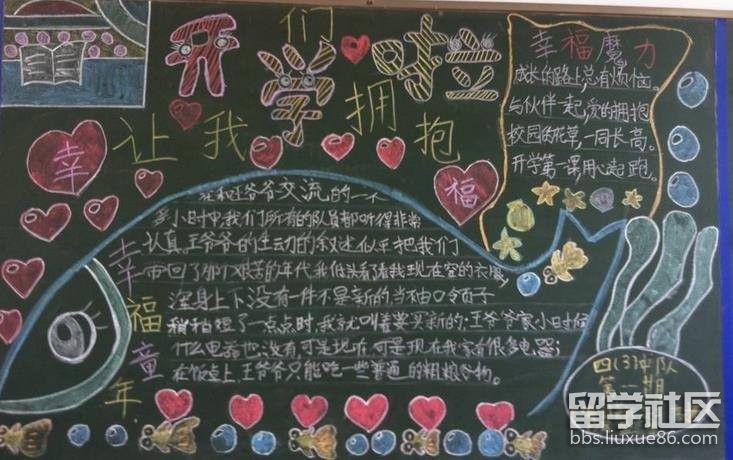 开学啦
让我们拥抱幸福
幸福童年
幸福魔力
成长的路上总有烦恼。
与伙伴一起,爱的拥抱
校园的花草,一同长高。
开学第一课用心起跑。
在和王爷爷交流的一个
多小时中,我们所有的队员都听得非常
认真。王爷爷的生动的叙述似乎把我们
带回了那个艰苦的年代。我低头看了看我现在穿的衣服
浑身上下没有一件不是新的,当袖口、领子
稍稍短了一点点时,我就叫着要买新的;王爷爷家小时候
什么电器也没有,可是现在,可是现在我家有很多电器;
在饭桌上,王爷爷只能吃一些普通的粗粮谷物。
四(3)中队
第一期
留学社区
bbs.liuxue86.com